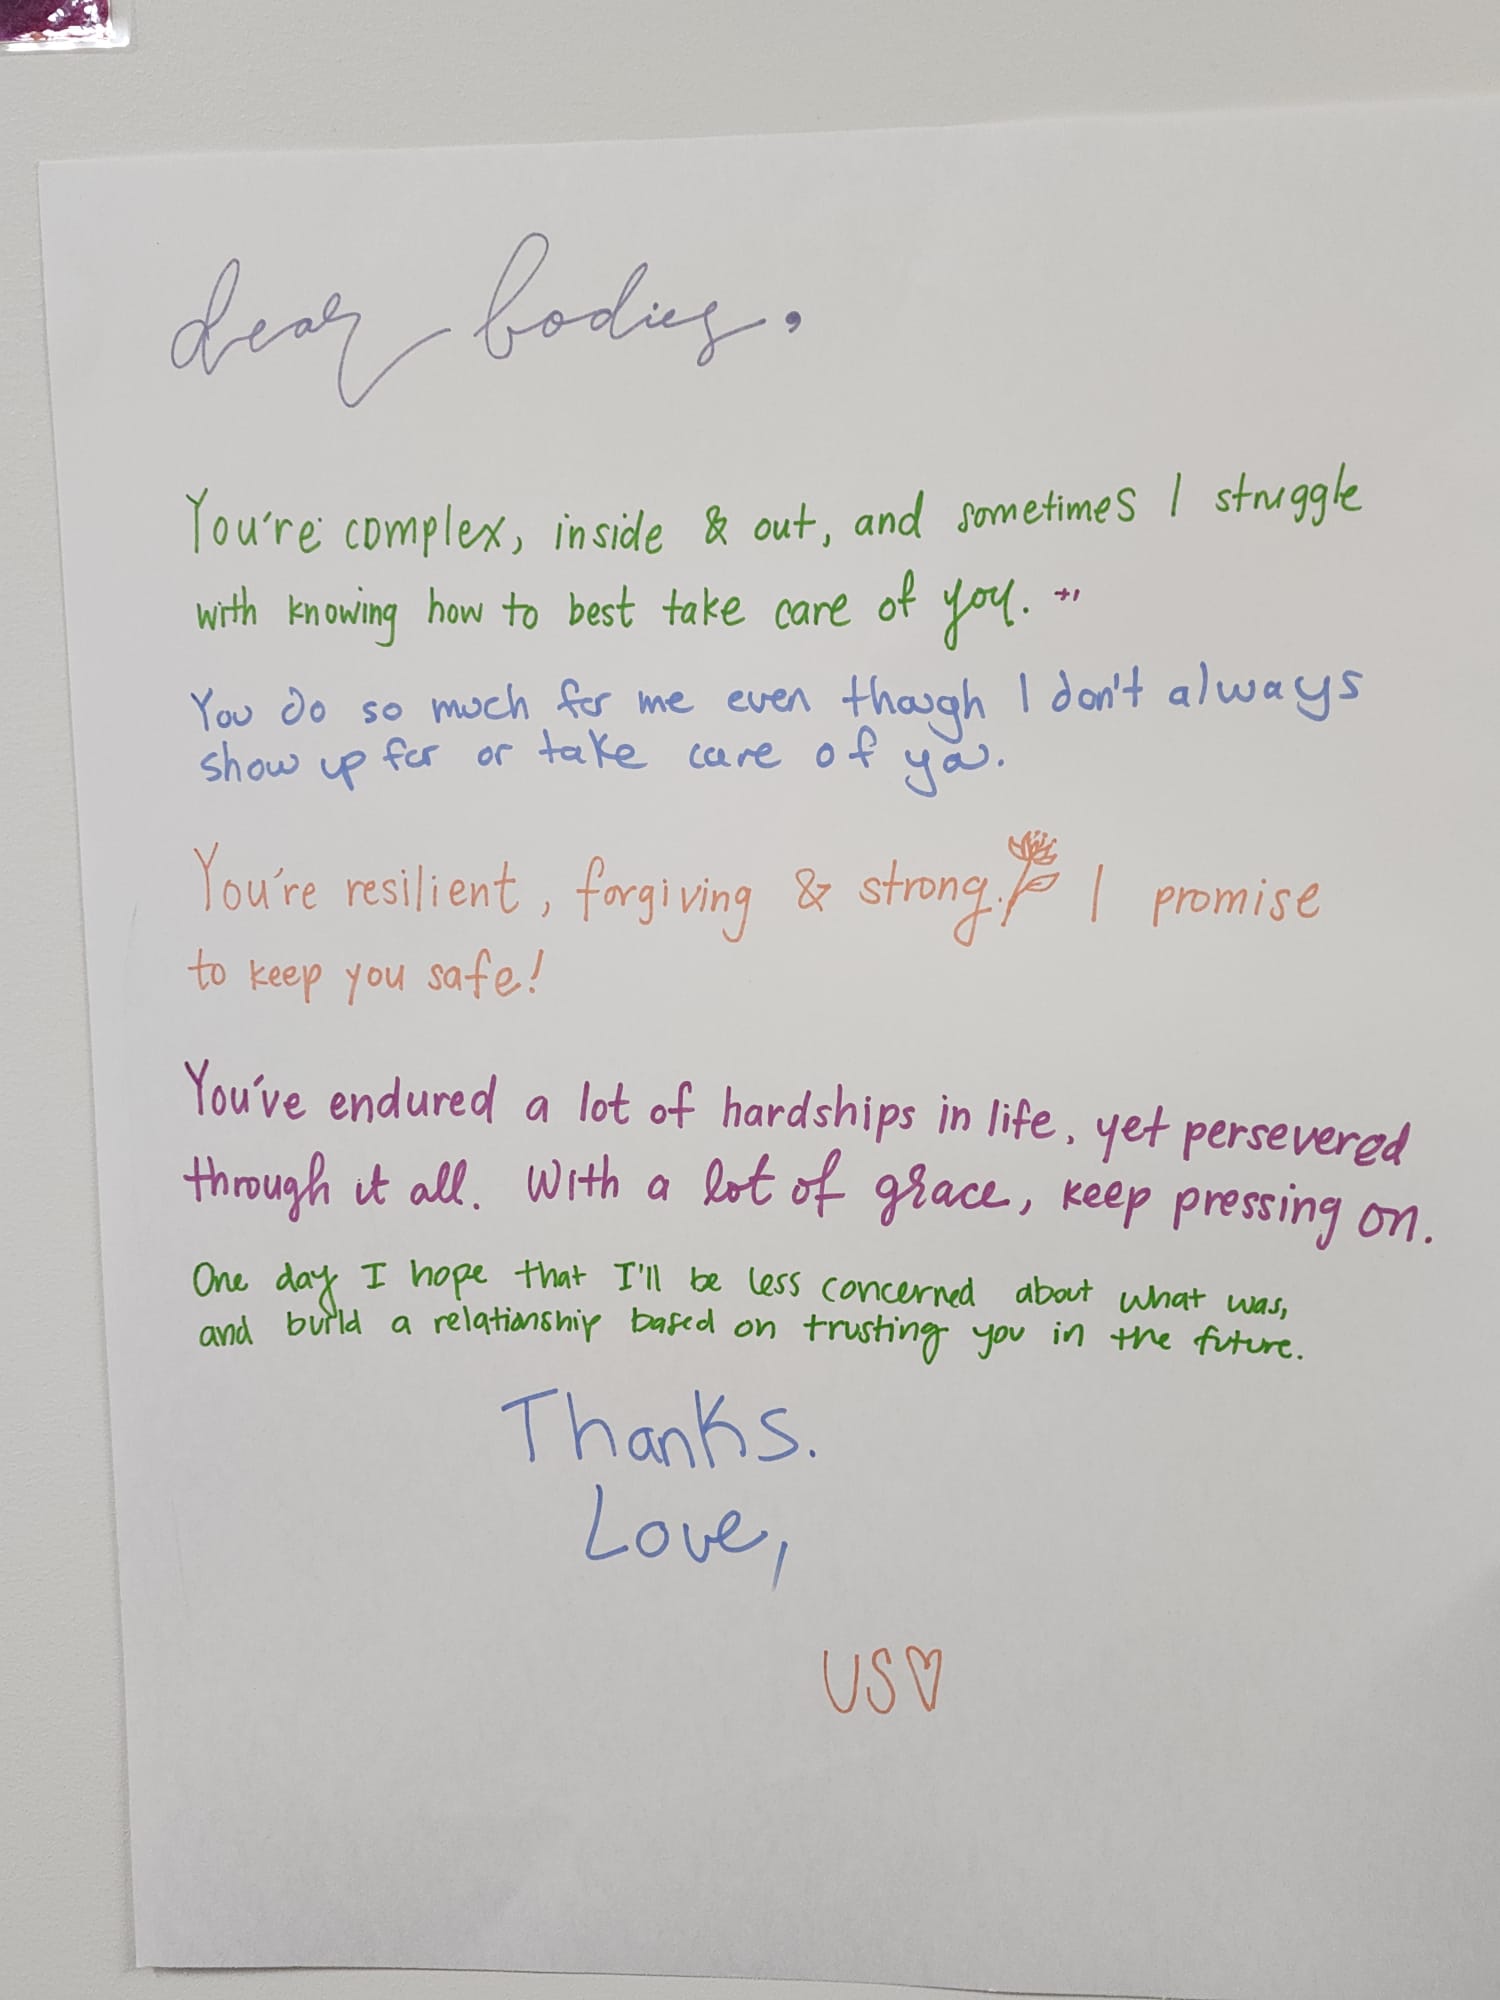 dear bodies,
You're complex, inside & out, and sometimes I struggle
with knowing how to best take care of you. +1
You do so much for me even though I don't always
show up for or take care of you.
You're resilient, forgiving & strong. I promise
to keep you safe!
You've endured a lot of hardships in life, yet persevered
through it all. With a lot of grace, keep pressing on.
One day I hope that I'll be less concerned about what was,
and build a relationship based on trusting you in the future.
Thanks.
Love,
US♡